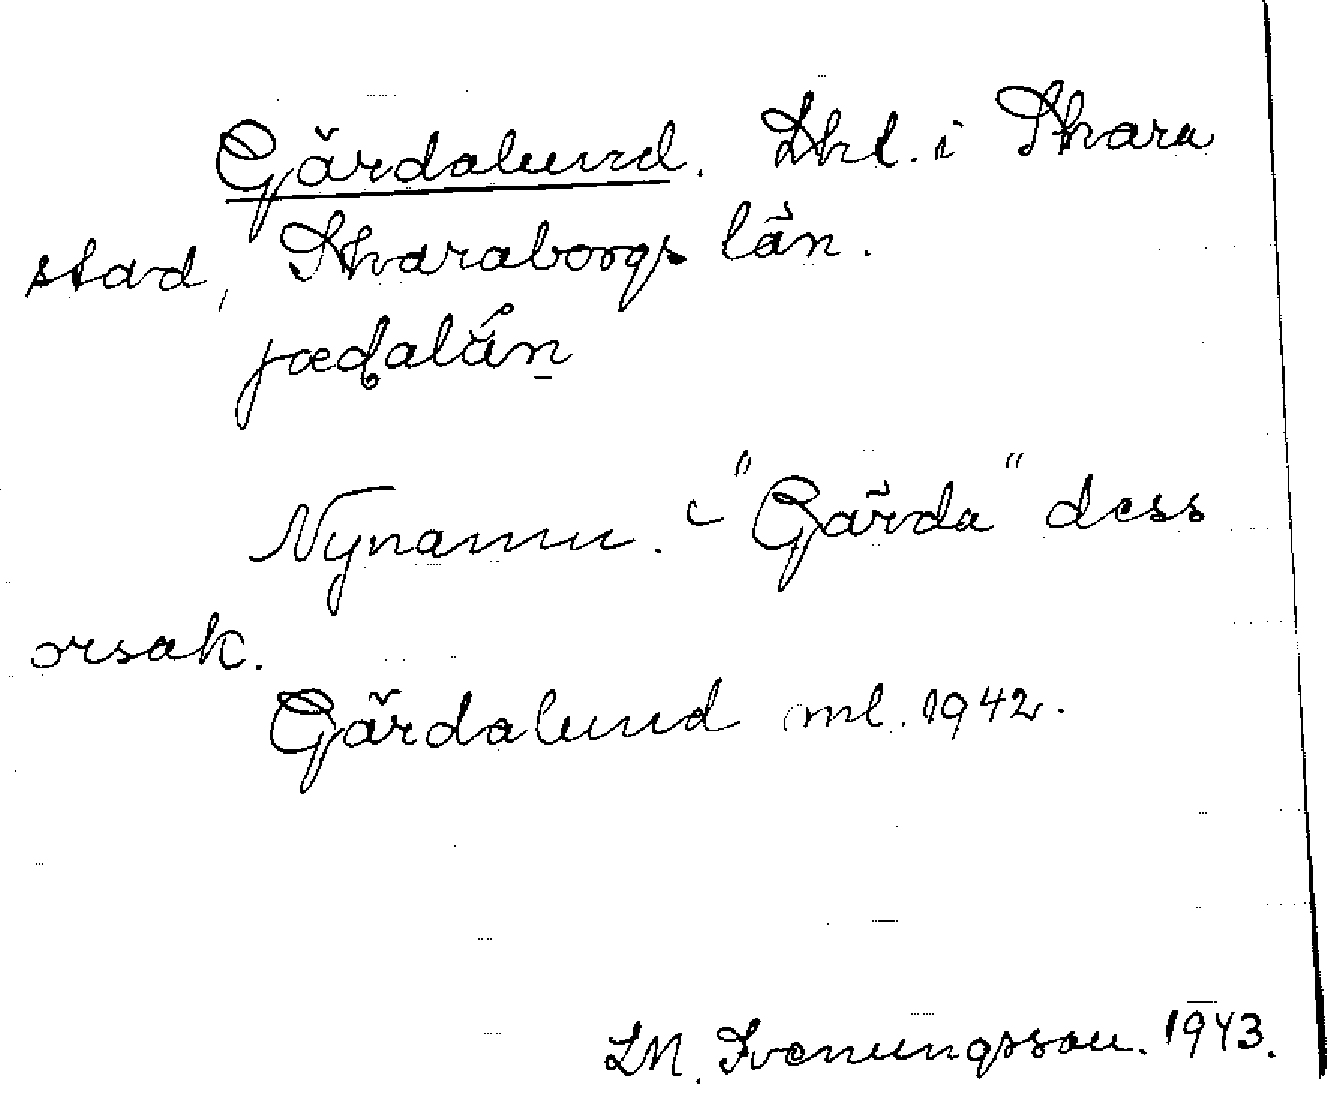 Gärdalund. Lht. i Skara
stad, Skaraborgs län.
jæḍalån
Nynamn. - "Gärda" dess
orsak.
Gärdalund ml. 1942.
LM. Svenungsson. 1943.